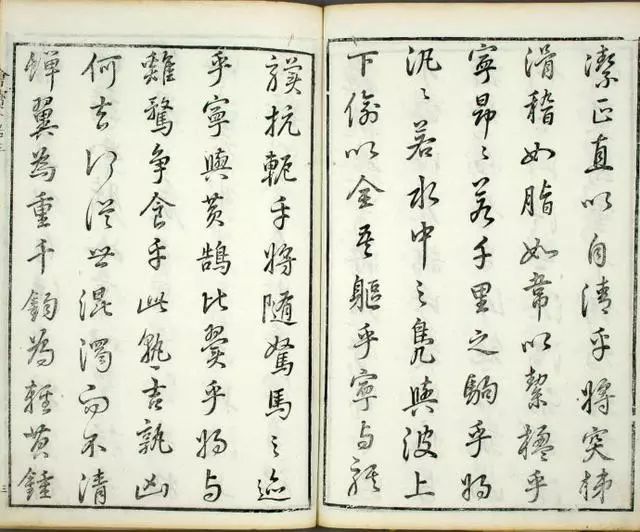 潔正直以自清乎將突梯
滑稽如脂如韋以絜楹乎
寧昂〻若千里之駒乎將
汎〻若水中之鳧與波上
下偷以全吾軀乎寧与騏
驥抗軛乎將隨駑馬之迹
乎寧與黃鵠比翼乎將与
雞鶩爭食乎此孰吉孰凶
何去何從世混濁而不清
蟬翼為重千鈞為輕黃鍾